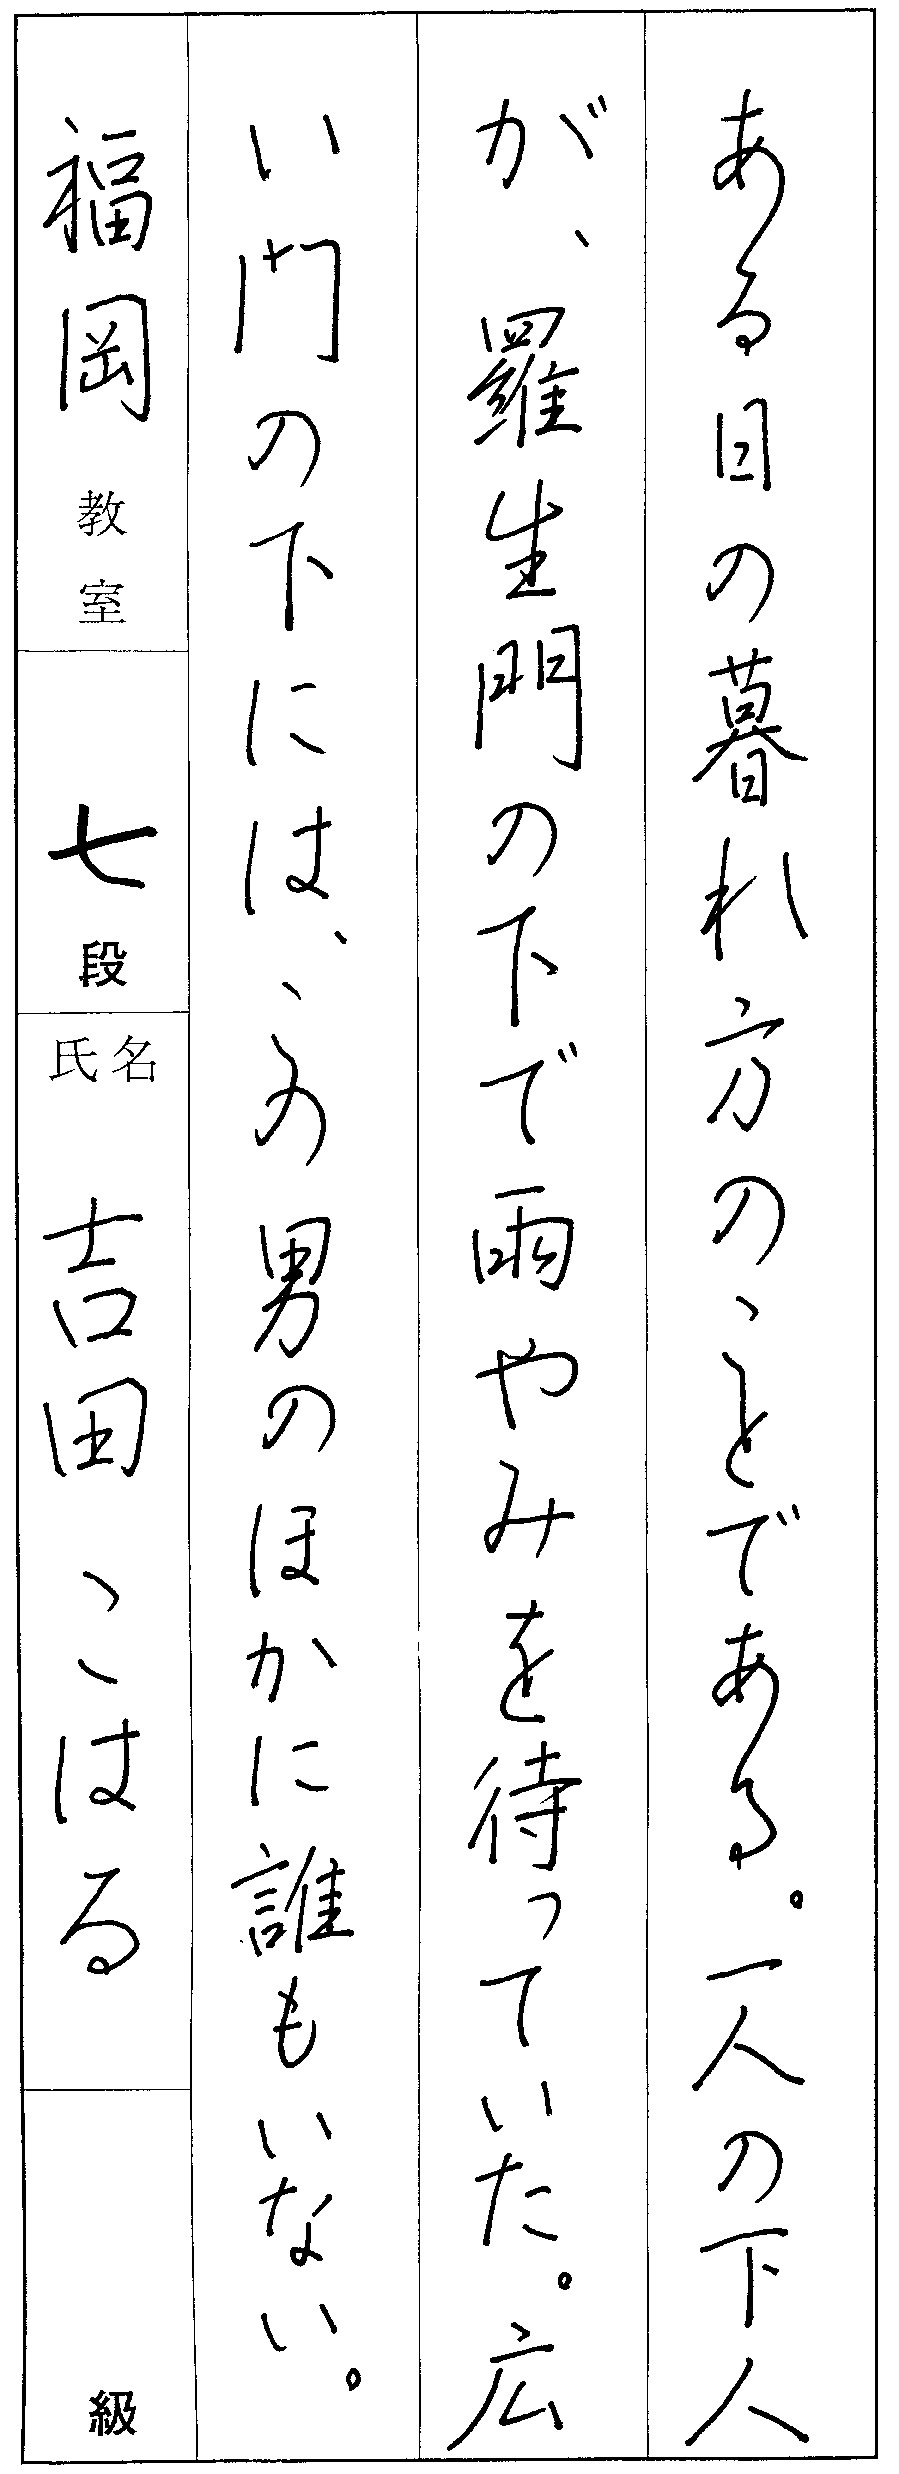 ある日の暮れ方のことである。一人の下人
が、羅生門の下で雨やみを待っていた。広
い門の下には、この男のほかに誰もいない。
福岡教室
七段
氏名 吉田こはる
級